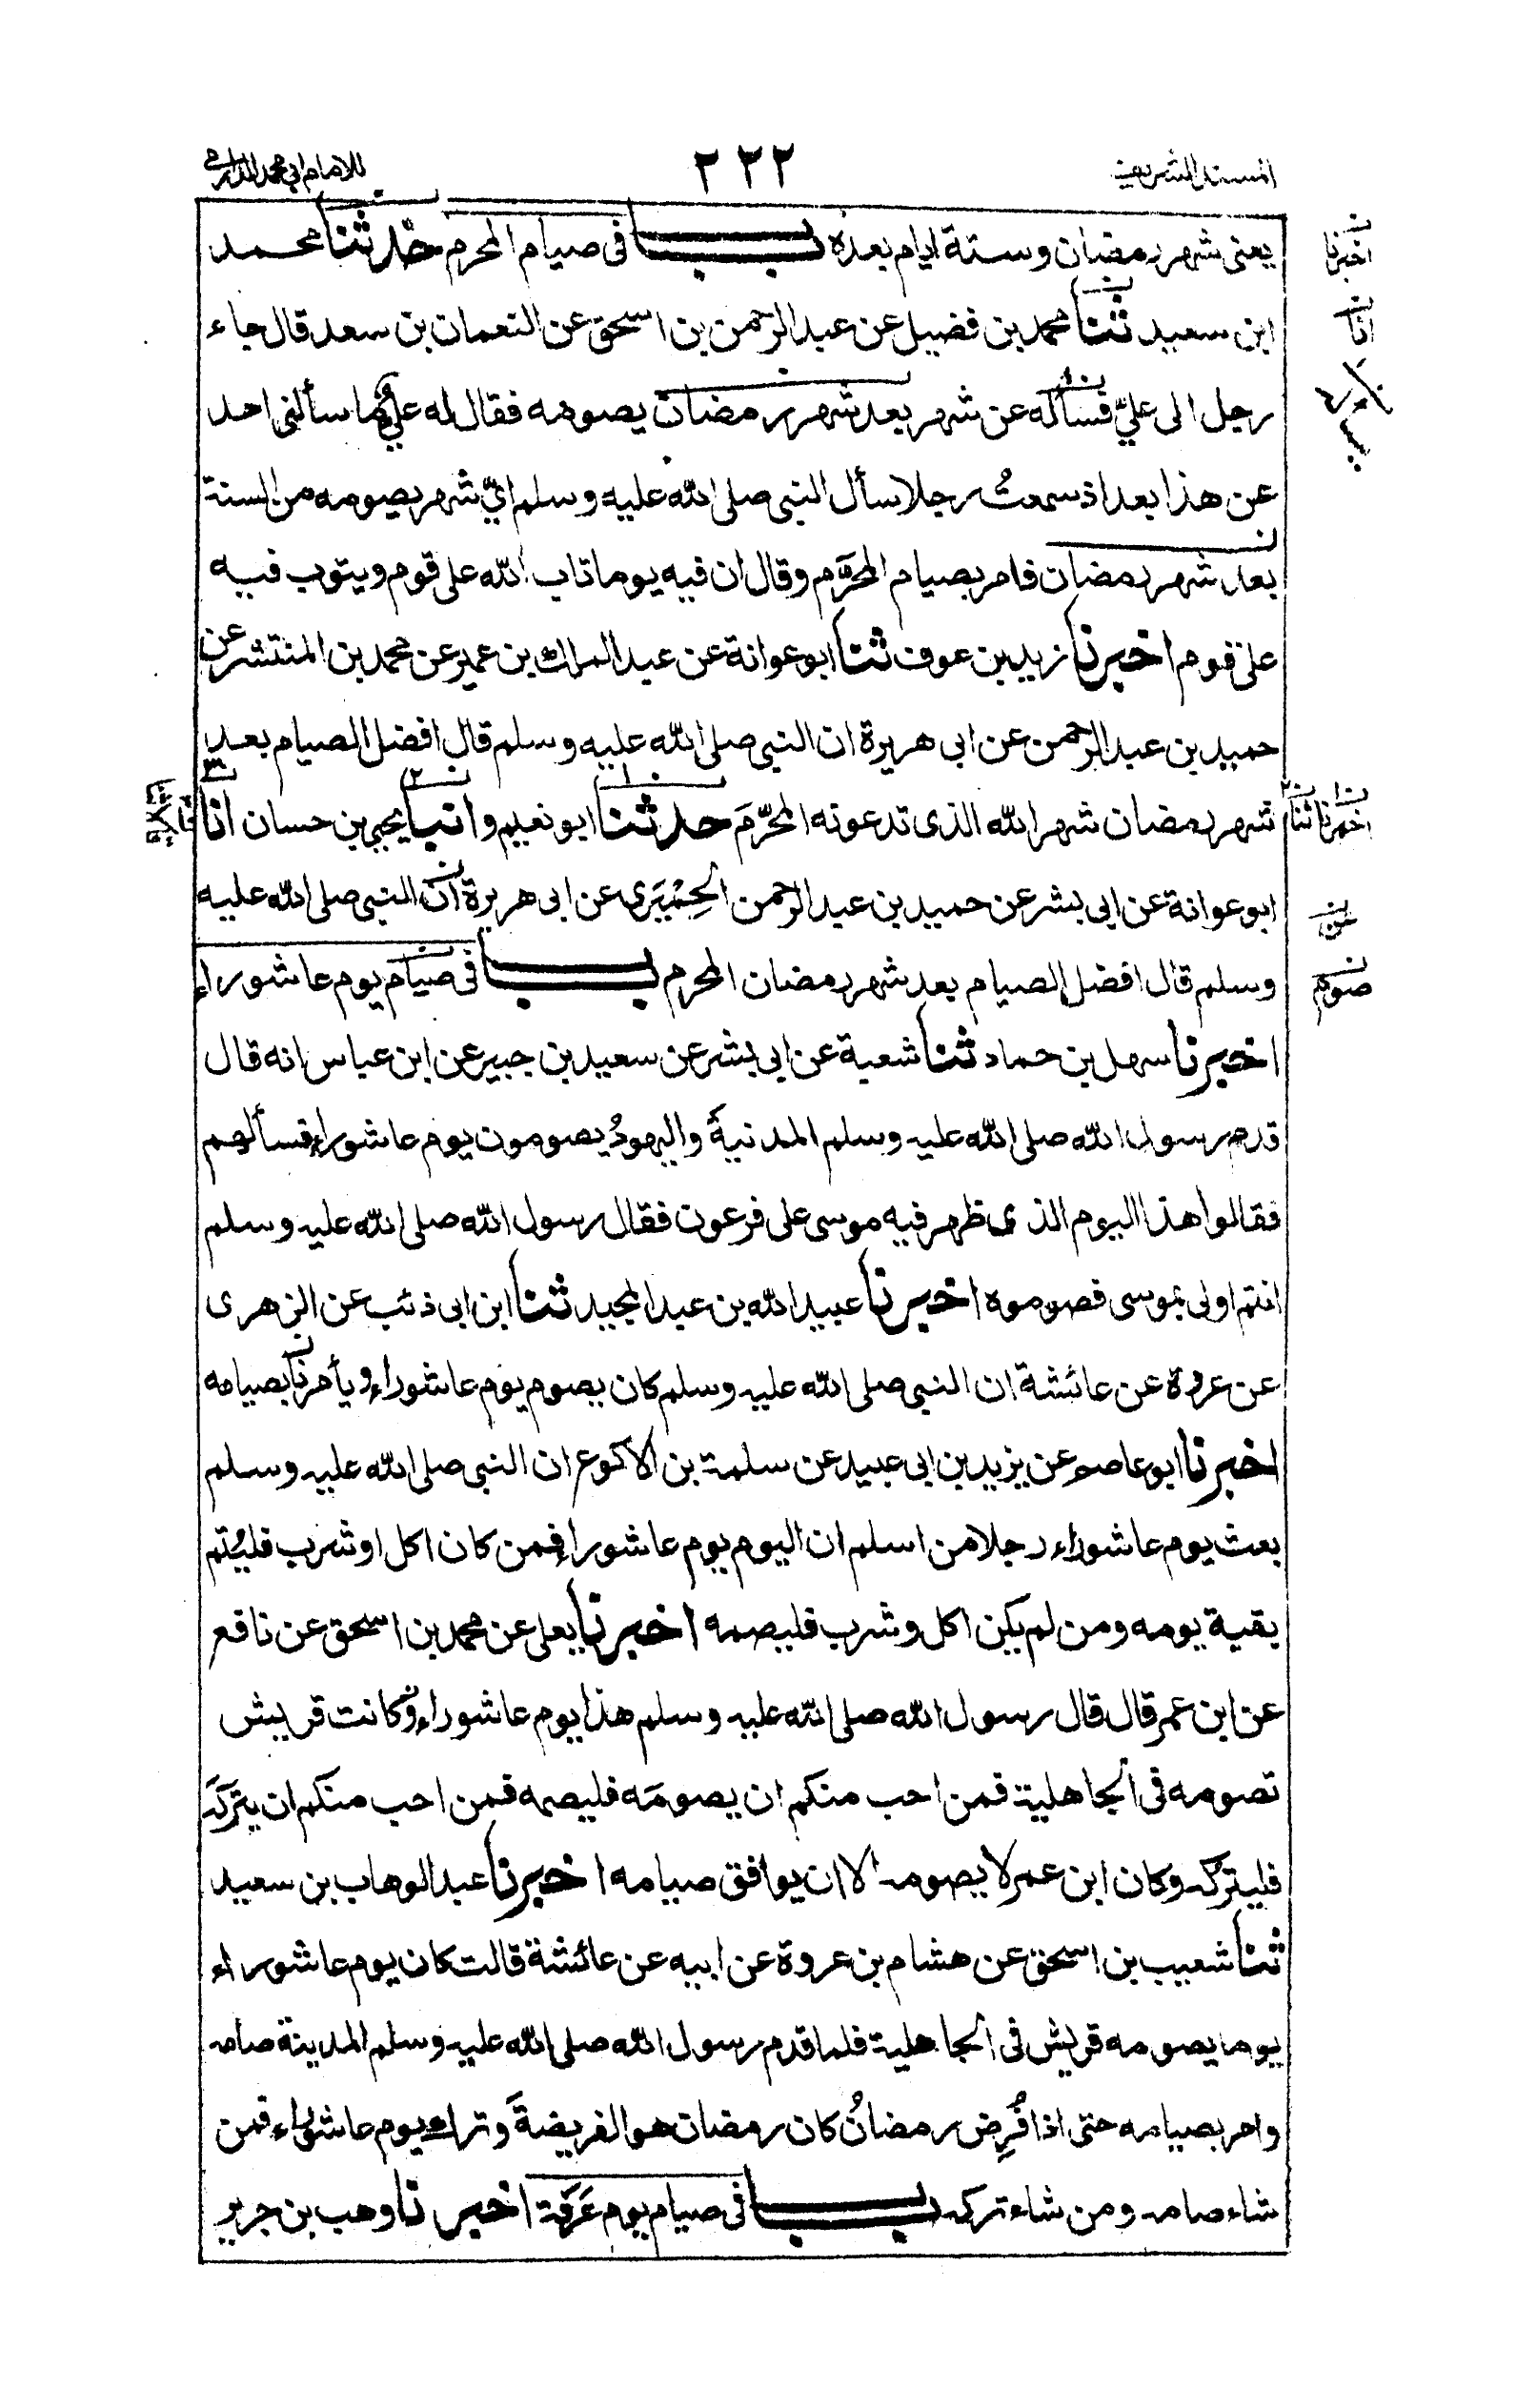 المسند الشريف
٢٢٢
للامام ابي محمد الدارمي
يعنى شهر رمضان وستة ايام بعده باب فى صيام المحرم حدثنا محمد
ابن سعيد ثنا محمد بن فضيل عن عبد الرحمن بن اسحق عن النعمان بن سعد قال جاء
رجل الى عليّ فسأله عن شهر بعد شهر رمضان يصومه فقال له عليّ ما سألنى احد
عن هذا بعد اذ سمعتُ رجلا سأل النبى صلى الله عليه وسلم ايّ شهر يصومه من السنة
بعد شهر رمضان فامر بصيام المحرَّم وقال ان فيه يوما تاب الله على قوم ويتوب فيه
على قوم اخبرنا زيد بن عوف ثنا ابو عوانة عن عبد الملك بن عمير عن محمد بن المنتشر عن
حميد بن عبد الرحمن عن ابى هريرة ان النبى صلى الله عليه وسلم قال افضل الصيام بعد
شهر رمضان شهر الله الذى تدعونه المحرّمَ حدثنا ابو نعيم وانبا يحيى بن حسان انا
ابو عوانة عن ابى بشر عن حميد بن عبد الرحمن الحِمْيَرى عن ابى هريرة ان النبى صلى الله عليه
وسلم قال افضل الصيام بعد شهر رمضان المحرم باب فى صيام يوم عاشوراء
اخبرنا سهل بن حماد ثنا شعبة عن ابى بشر عن سعيد بن جبير عن ابن عباس انه قال
قدم رسول الله صلى الله عليه وسلم المدنيةَ واليهودُ يصومون يوم عاشوراء فسألهم
فقالوا هذا اليوم الذى ظهر فيه موسى على فرعون فقال رسول الله صلى الله عليه وسلم
انتم اولى بموسى فصوموه اخبرنا عبيد الله بن عبد المجيد ثنا ابن ابى ذئب عن الزهرى
عن عروة عن عائشة ان النبى صلى الله عليه وسلم كان يصوم يوم عاشوراء ويأمرنا بصيامه
اخبرنا ابو عاصم عن يزيد بن ابى عبيد عن سلمة بن الاكوع ان النبى صلى الله عليه وسلم
بعث يوم عاشوراء رجلا من اسلم ان اليوم يوم عاشوراء فمن كان اكل او شرب فليُتم
بقية يومه ومن لم يكن اكل وشرب فليصمه اخبرنا يعلى عن محمد بن اسحق عن نافع
عن ابن عمر قال قال رسول الله صلى الله عليه وسلم هذا يوم عاشوراء وكانت قريش
تصومه فى الجاهلية فمن احب منكم ان يصومَه فليصمه فمن احب منكم ان يتركَه
فليتركه وكان ابن عمر لا يصومه الا ان يوافق صيامه اخبرنا عبد الوهاب بن سعيد
ثنا شعيب بن اسحق عن هشام بن عروة عن ابيه عن عائشة قالت كان يوم عاشوراء
يوما يصومه قريش فى الجاهلية فلما قدم رسول الله صلى الله عليه وسلم المدينة صامه
وامر بصيامه حتى اذا فُرِض رمضانُ كان رمضان هو الفريضةَ وترك يوم عاشوراء فمن
شاء صامه ومن شاء تركه باب فى صيام يوم عَرَفة اخبرنا وهب بن جرير
اخبرنا
انا
اخبرنا
ثنا
عن
صوم